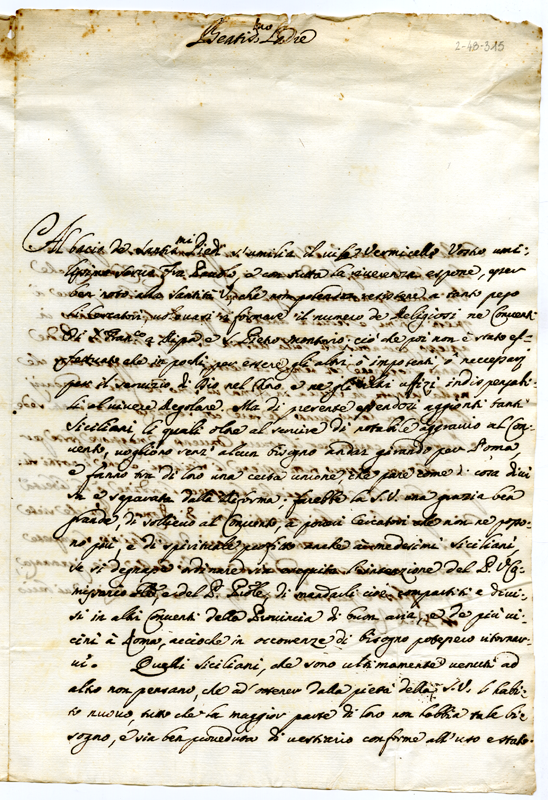 Beatis.mo Padre
2-48-315
Al bacio de Santis.mi Piedi s'umilia il vile Vermicello Vostro umi:
lissimo servo Fra Paolo, e con tutta la riverenza espone, esser
ben noto alla Santità V. che non potendosi resistere a tanto peso
di Cercatori, us' quasi a formare il numero de Religiosi ne Conventi
di S. Fran.co a Ripa e S. Pietro Montorio: ciò che poi non è stato ef-
fettuato che in pochi, per essere gli altri o impotenti, o necessarj
per il servizio di Dio nel Coro, e ne gli altri uffizj indispensabi:
li al vivere Regolare. Ma di presente essendosi aggionti tanti
Siciliani li quali oltre al servire di notabile aggravio al Con:
vento, vogliono senz' alcun bisogno andar girando per Roma,
e fanno tra di loro una certa unione, che pare come di cosa divi
sa e separata dalla Riforma. farebbe la S. V. una grazia ben
grande, di sollievo al Convento, a poveri Cercatori che non ne posso:
no più, e di spirituale profitto anche a medesimi Siciliani
se si degnasse ordinare
del P. Co
missario e del P. di mandarli così compartiti e divi:
si in altri Conventi della Provincia di buon aria, e de più vi:
cini à Roma, acciochè in occorrenze di bisogno potessero ritornar:
vi. Quelli Siciliani, che sono ultimamente venuti ad
altro non pensano, che ad ottener dalla pietà della S. V. l'habi:
to nuovo, tutto che la maggior parte di loro non habbia tale bi:
sogno, e sia ben proveduta di vestiario conforme all'uso e stato